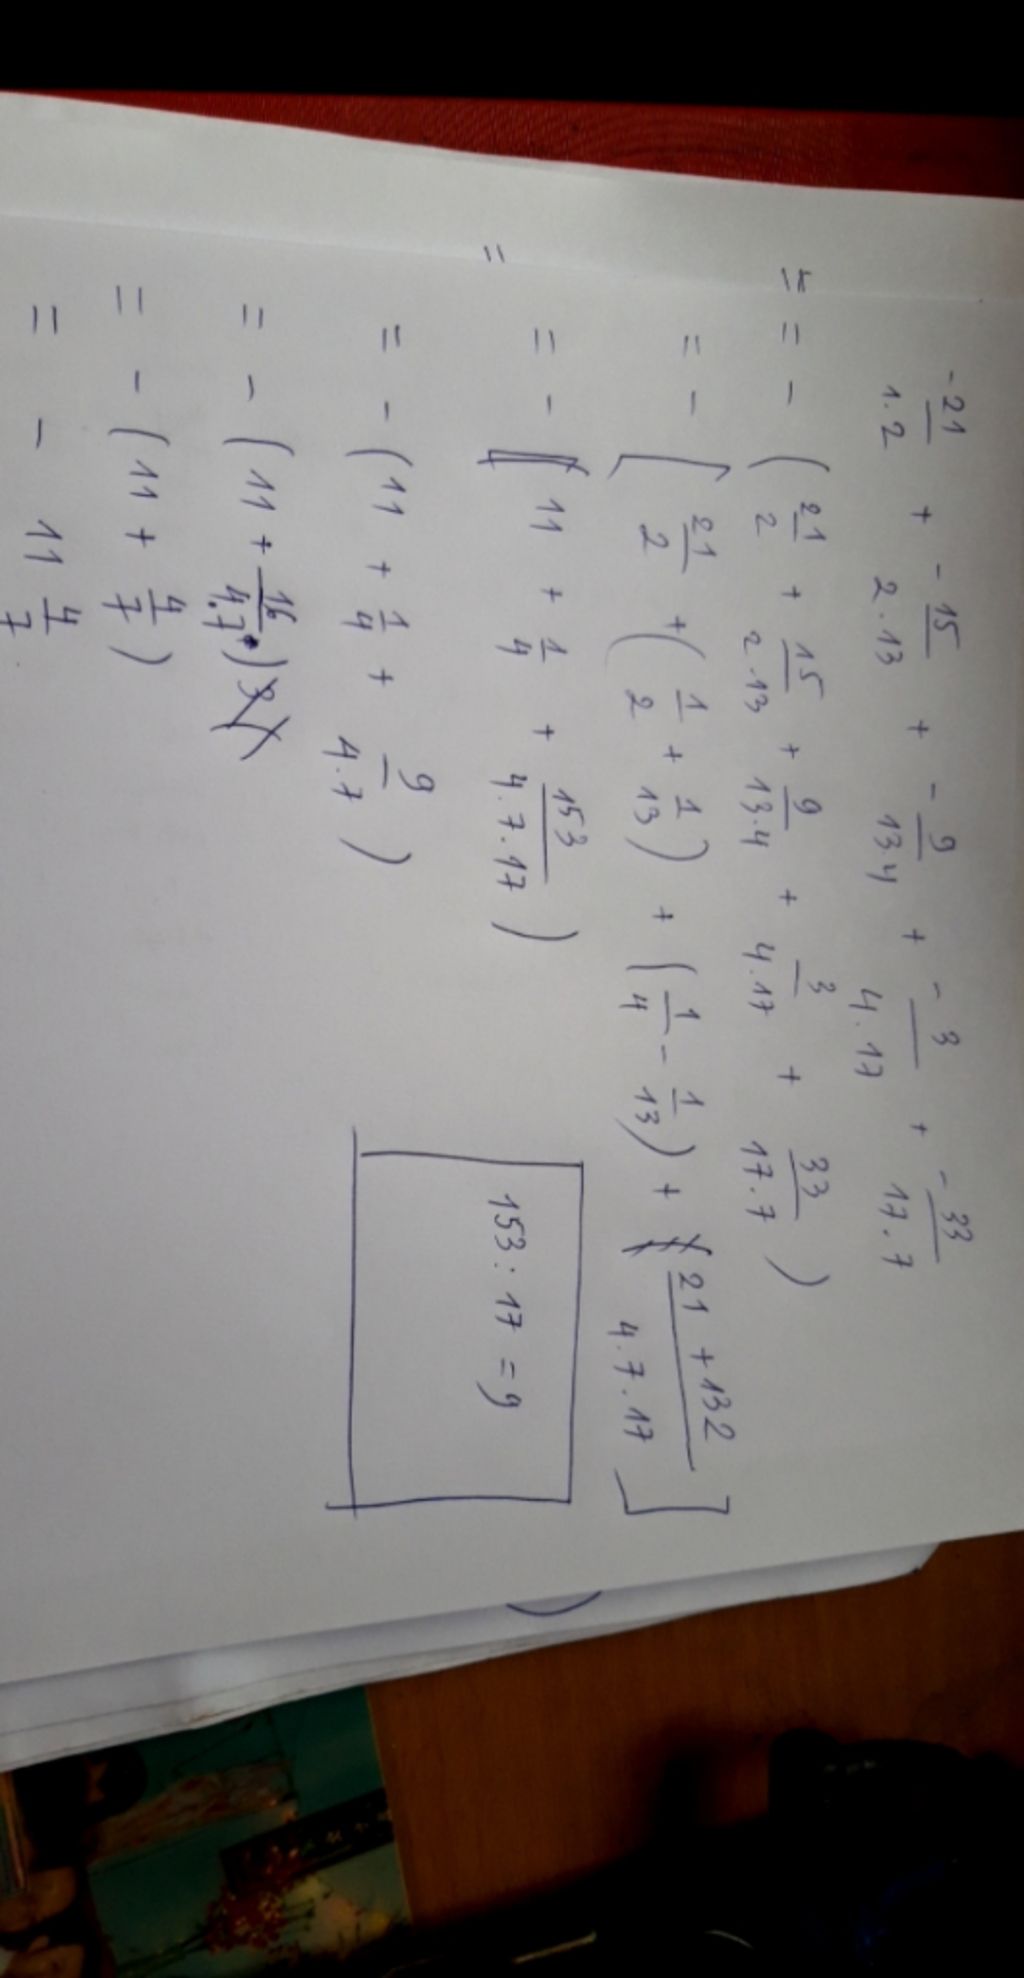 -21/1.2 + -15/2.13 + -9/13.4 + -3/4.17 + -33/17.7
= = - (21/2 + 15/2.13 + 9/13.4 + 3/4.17 + 33/17.7)
= - [21/2 + (1/2 + 1/13) + (1/4 - 1/13) + 21+132/4.7.17]
= = - [11 + 1/4 + 153/4.7.17)
153 : 17 = 9
= - (11 + 1/4 + 9/4.7)
= - (11 + 16/4.7)
= - (11 + 4/7)
= - 11 4/7